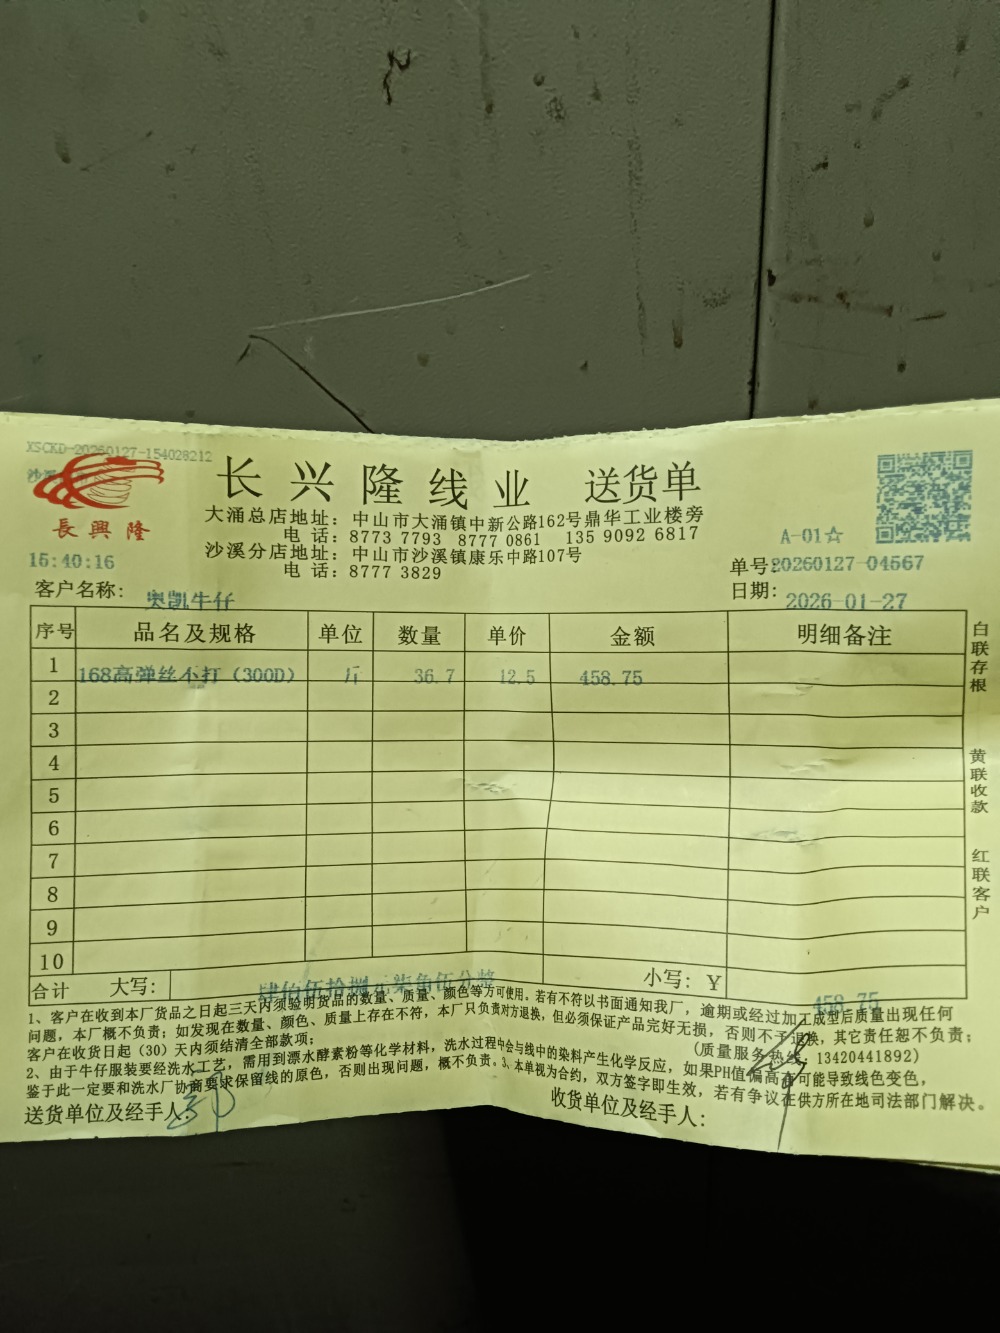 XSCKD-20260127-154028212
長興隆
长兴隆线业 送货单
大涌总店地址：中山市大涌镇中新公路162号鼎华工业楼旁
电 话：8773 7793 8777 0861 135 9092 6817
沙溪分店地址：中山市沙溪镇康乐中路107号
电 话：8777 3829
A-01☆
15:40:16
单号：20260127-04567
客户名称：奥凯牛仔
日期：2026-01-27
序号 品名及规格 单位 数量 单价 金额 明细备注
1 168高弹丝不打（300D） 斤 36.7 12.5 458.75
2
3
4
5
6
7
8
9
10
合计 大写：肆佰伍拾捌元柒角伍分整 小写：¥ 458.75
白联存根
黄联收款
红联客户
1、客户在收到本厂货品之日起三天内须验明货品的数量、质量、颜色等方可使用。若有不符以书面通知我厂，逾期或经过加工成型后质量出现任何
问题，本厂概不负责；如发现在数量、颜色、质量上存在不符，本厂只负责对方退换，但必须保证产品完好无损，否则不予退换，其它责任恕不负责；
客户在收货日起（30）天内须结清全部款项；
(质量服务热线：13420441892)
2、由于牛仔服装要经洗水工艺，需用到漂水酵素粉等化学材料，洗水过程中会与线中的染料产生化学反应，如果PH值偏高有可能导致线色变色，
鉴于此一定要和洗水厂协商要求保留线的原色，否则出现问题，概不负责。3、本单视为合约，双方签字即生效，若有争议在供方所在地司法部门解决。
送货单位及经手人：
收货单位及经手人：